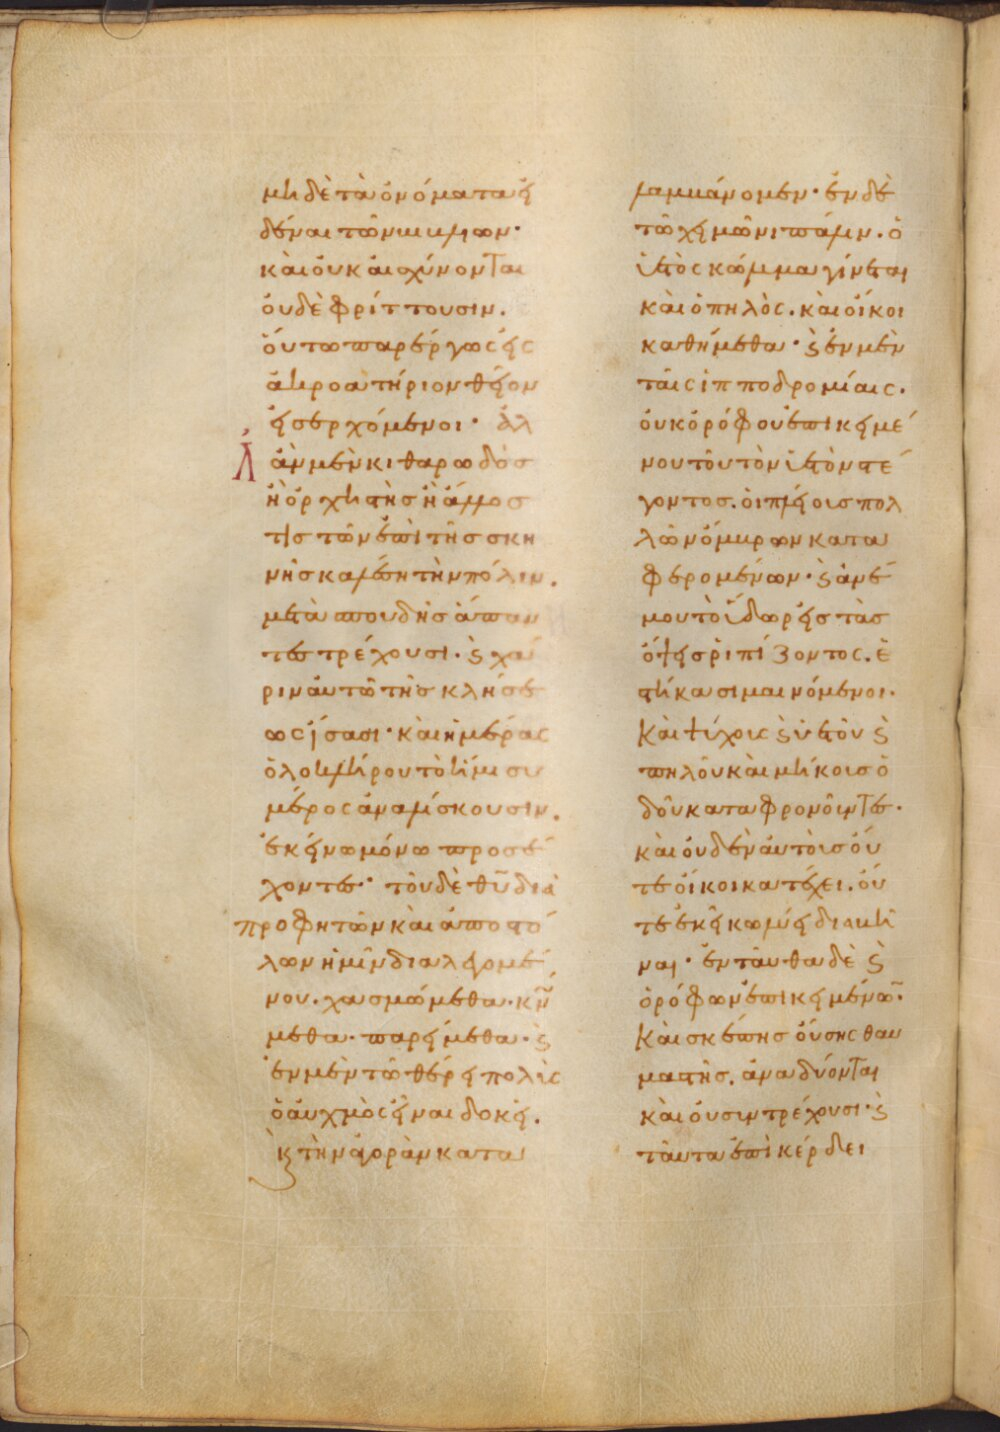 μὴ δὲ τὰ ὀνόματα εἰ
δέναι τῶν βιβλίων·
καὶ οὐκ αἰσχύνονται
οὐδὲ φρίττουσιν.
οὕτω παρέργως εἰς
ἀκροατήριον θεῖον
εἰσερχόμενοι· ἀλ
Λ ἂν μὲν κιθαρωδὸσ
ἢ ὀρχηστὴσ ἢ ἄλλοσ
τὶσ τῶν ἐπὶ τῆσ σκη
νῆσ καλέση τὴν πόλιν.
μετὰ σπουδῆσ ἅπαν
τεσ τρέχουσι. ϗ χά
ριν αὐτῶ τῆσ κλήσε
ως ἴσασι· καὶ ἡμέρας
ὁλοκλήρου τὸ ἥμισυ
μέρος ἀναλίσκουσιν.
ἐκείνω μόνω προσέ
χοντεσ· τοῦ δὲ θῦ διὰ
προφητῶν καὶ ἀποστό
λων ἡμῖν διαλεγομέ
νου. χασμώμεθα. κν
μεθα. παρείμεθα. ϗ
ἐν μὲν τῶ θέρει πολὺς
ὁ αὐχμὸς εἶναι δοκεῖ.
ϗ τὴν ἀγορὰν κατα
λαμβάνομεν· ἐν δὲ
τῶ χειμῶνι πάλιν. ὁ
ὑετὸς κώλυμα γίνεται
καὶ ὁ πηλὸς. καὶ οἴκοι
καθήμεθα· ϗ ἐν μὲν
ταῖς ἱπποδρομίαις.
οὐκ ὀρόφου ἐπικειμέ
νου τοῦ τὸν ὑετὸν στέ
γοντοσ. οἱ πλείουσ πολ
λῶν ὄμβρων κατα
φερομένων. ϗ ἀνέ
μου τὸ ὕδωρ εἰσ τὰσ
ὄψεισ ῥιπίζοντος. ἑ
στήκασι μαινόμενοι.
καὶ ψύχους ϗ ὑετοῦ ϗ
πηλοῦ καὶ μήκουσ ὁ
δοῦ καταφρονοῦντεσ.
καὶ οὐδὲν αὐτοὺσ οὔ
τε οἴκοι κατέχει. οὔ
τε ἐκεῖ κωλύει διαμεῖ
ναι· ἐνταῦθα δὲ ϗ
ὀρόφων ἐπικειμένω.
καὶ σκέπησ οὔσης θαυ
μαστῆσ. ἀναδύονται
καὶ οὐ συντρέχουσι· ϗ
ταῦτα ἐπὶ κέρδει